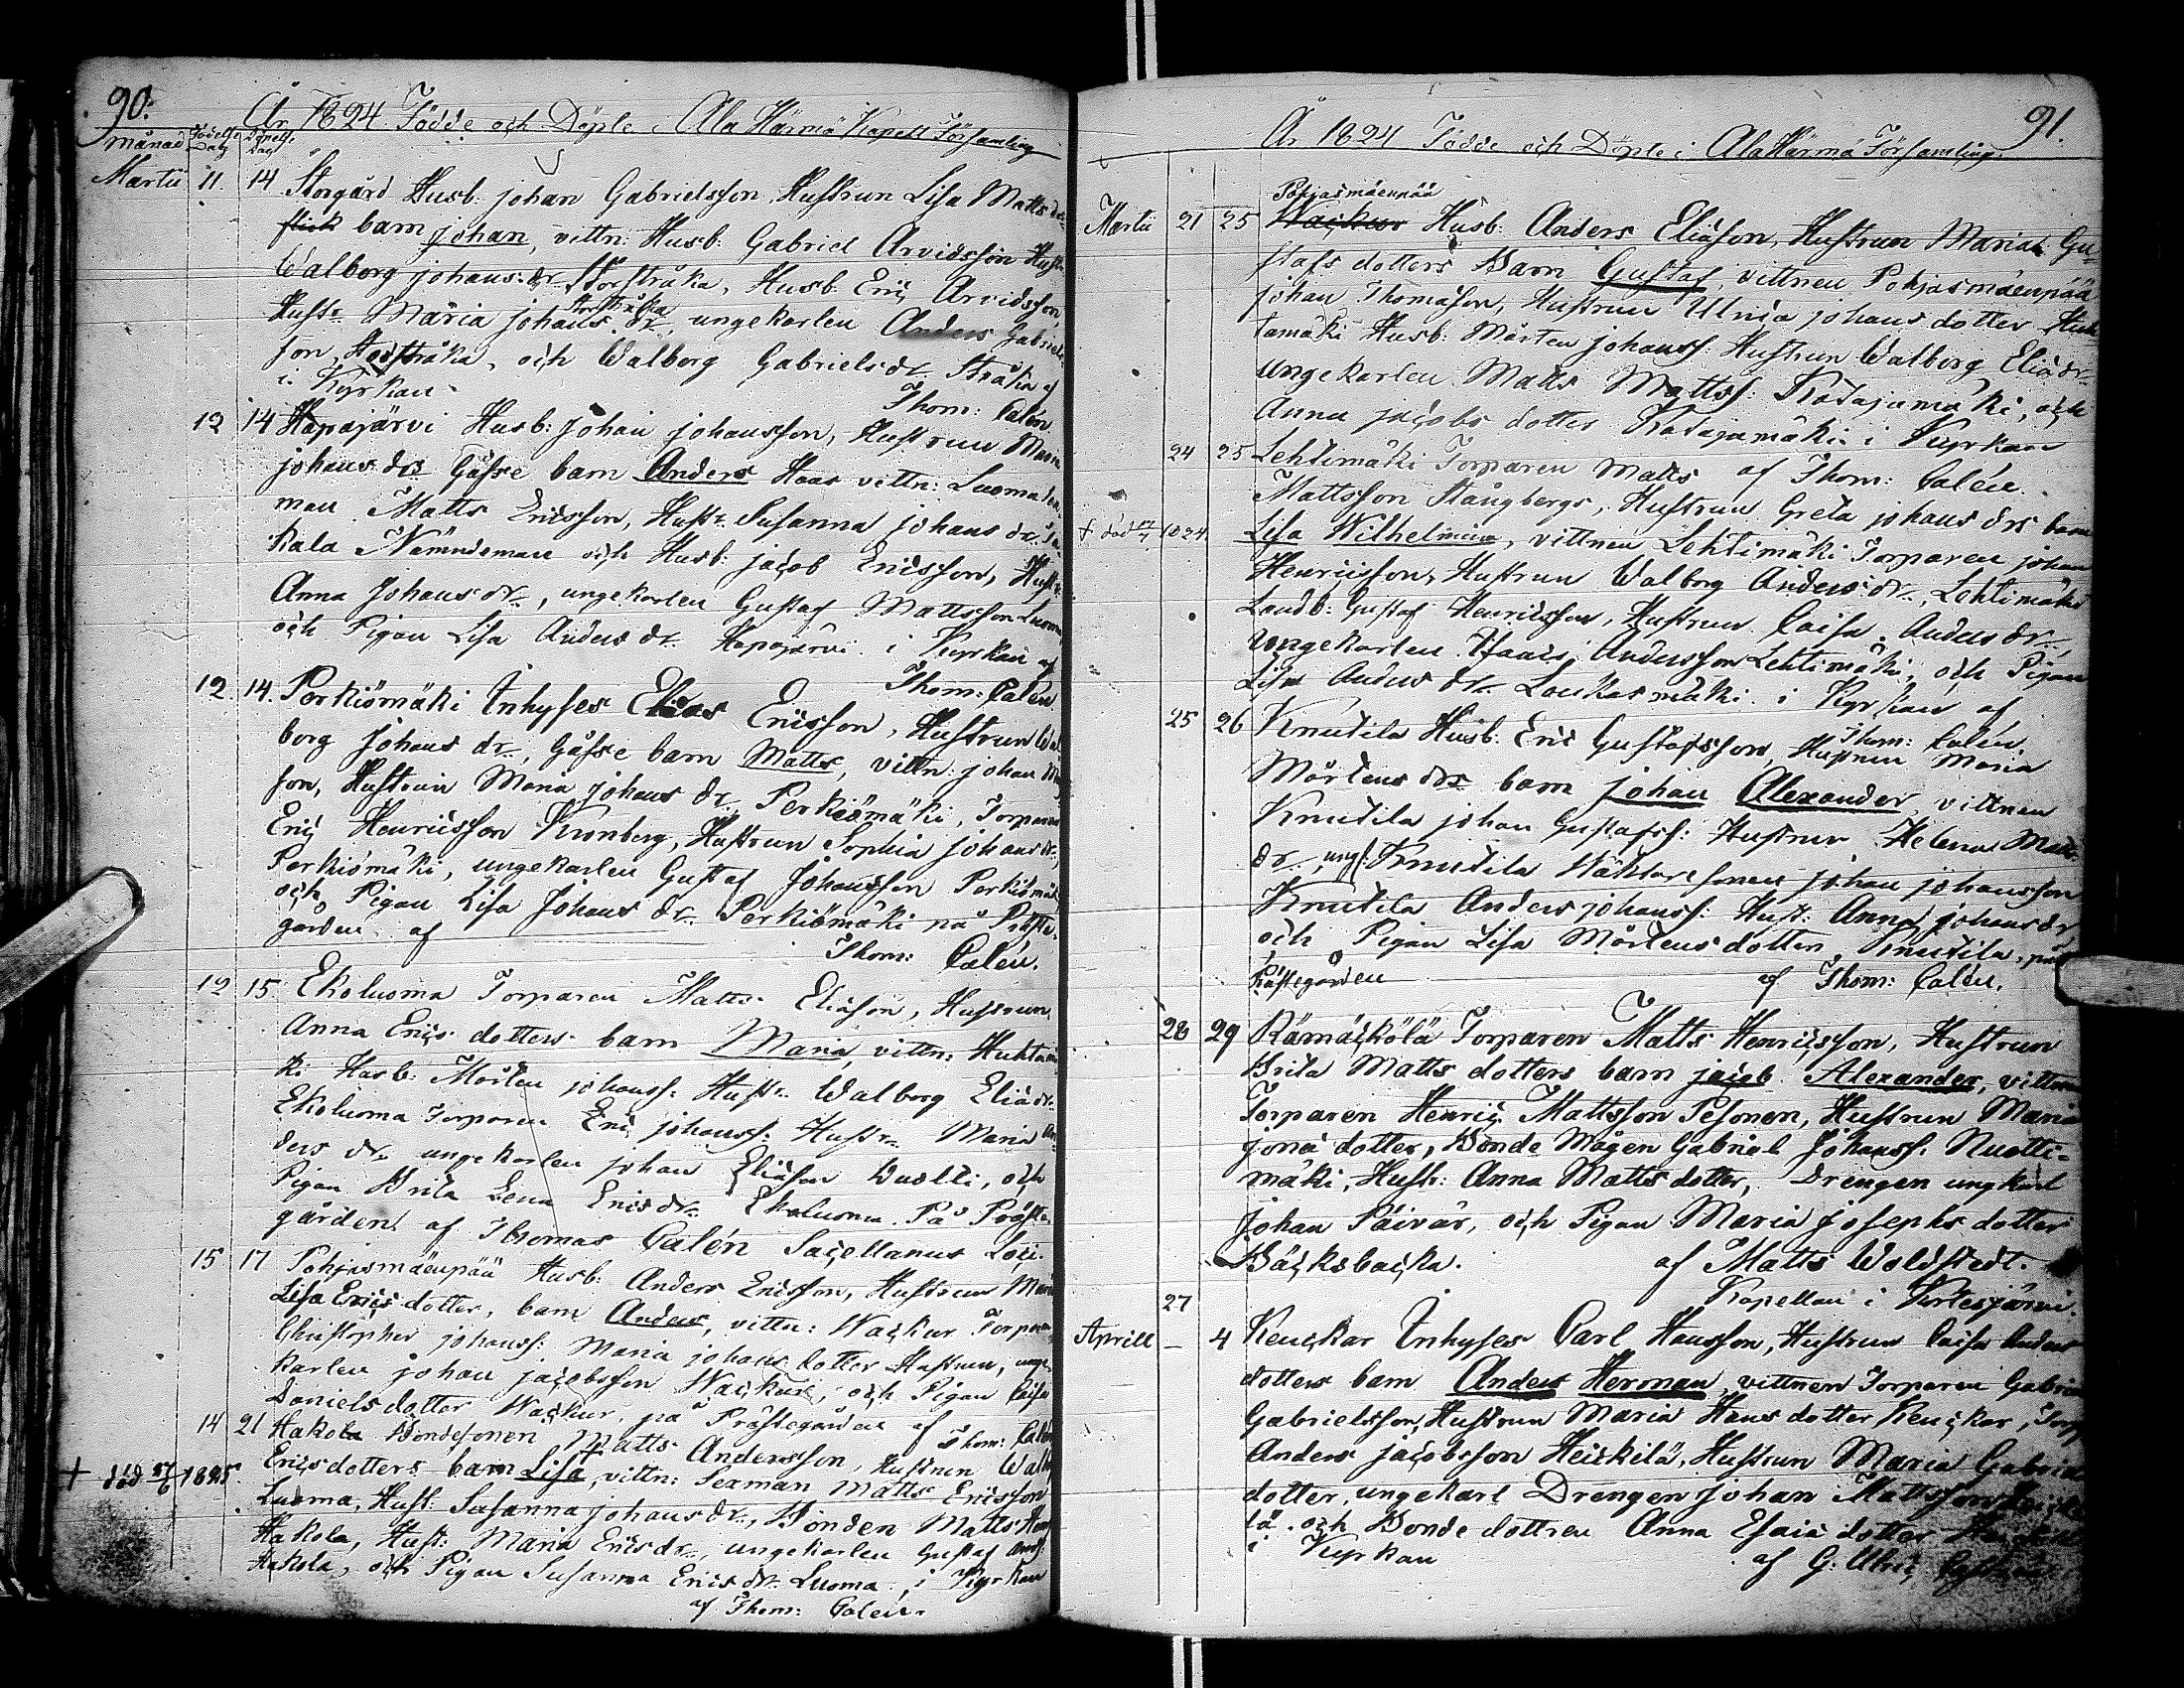 90.
År 1824. Födde och Döpte i Ala Härmä Kapell Församling
månad Födelse Dag Döpelse Dag
Martii 11. 14 Storgård Husb: johan Gabrielsson, Hustrun Lisa Matts dr
flick barn johan, vittn: Husb: Gabriel Arvidsson Hustr
Walborg johans dr Storstråka, Husb: Eric Arvidsson,
Hustr. Maria johans dr. Storstråka, ungekarlen Anders Gabriels
son Storstråka, och Walborg Gabrielsdr. Stråka af
i Kyrkan Thom: Calén
12 14 Hapajärvi Husb: Johan johansson, Hustrun Maria
johans drs Gosse barn Anders Hans vittn: Luoma
man Matts Ericsson, Hustr. Susanna johans dr.
kala Nämndeman och Husb: jacob Ericsson, Hustr.
Anna Johansdr., ungekarlen Gustaf Mattsson Luoma
och Pigan Lisa Anders dr. Hapajärvi i Kyrkan af
Thom: Calén
12 14. Porkiömäki Inhyses Elias Ericsson, Hustrun Wal
borg Johans dr., Gosse barn Matts, vittn: johan
son, Hustrun Maria johans dr. Perkiömäki, Torparen
Eric Henricsson Kronberg, Hustrun Sophia johans dr.,
Perkiömäki, ungekarlen Gustaf Johansson Perkiömäki
och Pigan Lisa Johans dr. Perkiömäki på Präste
gården af Thom: Calén.
12 15 Ekoluoma Torparen Matts Eliäson, Hustrun
Anna Erics dotters barn Maria, vittn: Huhtamä
ki Husb: Mårten johanss: Hustr. Walborg Eliädr.
Ekoluoma Torparen Eric johanss: Hustr. Maria An
ders dr. ungekarlen johan Eliäson Wuolli, och
Pigan Brita Lena Ericsdr. Ekoluoma. På Präste
gården af Thomas Calén Sacellanus Loci.
15 17 Pohjasmäenpää Husb: Anders Ericsson, Hustrun Maria
Lisa Erics dotter, barn Anders, vittn: Wackur Torparen
Christopher johanss: Maria johans dotter Hustrun, unge
karlen johan jacobsson Wackur, och Pigan Caisa
Danielsdotter Wackur, på Prästegården af Thom: Calén
14 21 Hakola Bondesonen Matts Andersson, Hustrun Walb
+ död 27/6 1825. Ericsdotters barn Lisa, vittn: Sexman Matts Ericsson
Luoma, Hust: Susanna johans dr., Bonden Matts
Hakola, Hust: Maria Ericsdr., ungekarlen Gustaf And
Hakola, och Pigan Susanna Erics dr. Luoma, i Kyrkan
af Thom: Calén.
91.
År 1824 Födde och Döpte i Ala Härmä Församling.
Pohjasmäenpää
Martii 21 25 Wackur Husb: Anders Eliäson, Hustrun Maria Gu-
stafs dotters Barn Gustaf, vittnen Pohjasmäenpää
johan Thomäson, Hustrun Ulrica johans dotter Huh
tamäki Husb: Mårten johanss: Hustrun Walborg Eliädr.
Ungekarlen Matts Mattss: Katajamäki, och
Anna jacobs dotter Katajamäki i Kyrkan
24 25 Lehtimäki Torparen Matts af Thom: Calén.
Mattsson Stångbergs, Hustrun Greta johans drs barn
+ död 1824. Lisa Wilhelmina, vittnen Lehtimäki Torparen johan
Henricsson, Hustrun Walborg Anders dr., Lehtimäki
Landb: Gustaf Henricsson, Hustrun Caisa Anders dr.,
Ungekarlen Andersson Lehtimäki, och Pigan
Lisa Anders dr. Loukasmäki i Kyrkan af
Thom: Calén.
25 26 Knutila Husb: Eric Gustafsson, Hustrun Maria
Mårtens drs barn johan Alexander vittnen
Knutila johan Gustafss: Hustrun Helena Matts
dr., ungk: Knutila Waktaresonen johan johansson
Knutila Anders johanss: Hust: Anna johansdr
och Pigan Lisa Mårtens dotter Knutila, på
Prästegården af Thom: Calén.
28 29 Rämäckölä Torparen Matts Henricsson, Hustrun
Brita Matts dotters barn jacob Alexander, vittnen
Torparen Henric Mattsson Pesonen, Hustrun Maria
jonä dotter, Bonde Mågen Gabriel Johanss: Nuotti-
mäki, Hust: Anna Matts dotter, Drengen ungkarl
johan Päivär, och Pigan Maria josephs dotter
Bäcksbacka. af Matts Woldstedt.
Kapellan i Kortesjärvi.
27
Aprill – 4 Keuckar Inhyses Carl Hansson, Hustrun Caisa Anders
dotters barn Anders Herman, vittnen Torparen Gabriel
Gabrielsson, Hustrun Maria Hans dotter Keuckar, Torp
Anders jacobsson Heickilä, Hustrun Maria Gabriels
dotter, ungekarl Drengen johan Mattsson Heicki
lä och Bonde dottren Anna Esaiä dotter
i Kyrkan af G: Ulric